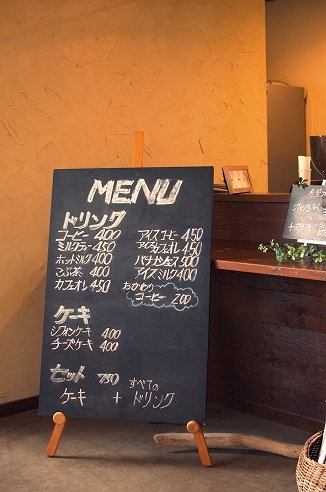 MENU
ドリンク
コーヒー 400
ミルクティー 450
ホットミルク 400
こぶ茶 400
カフェオレ 450
アイスコーヒー 450
アイスカフェオレ 450
バナナジュース 500
アイスミルク 400
おかわり
コーヒー 200
ケーキ
シフォンケーキ 400
チーズケーキ 400
セット 750 すべての
ケーキ + ドリンク